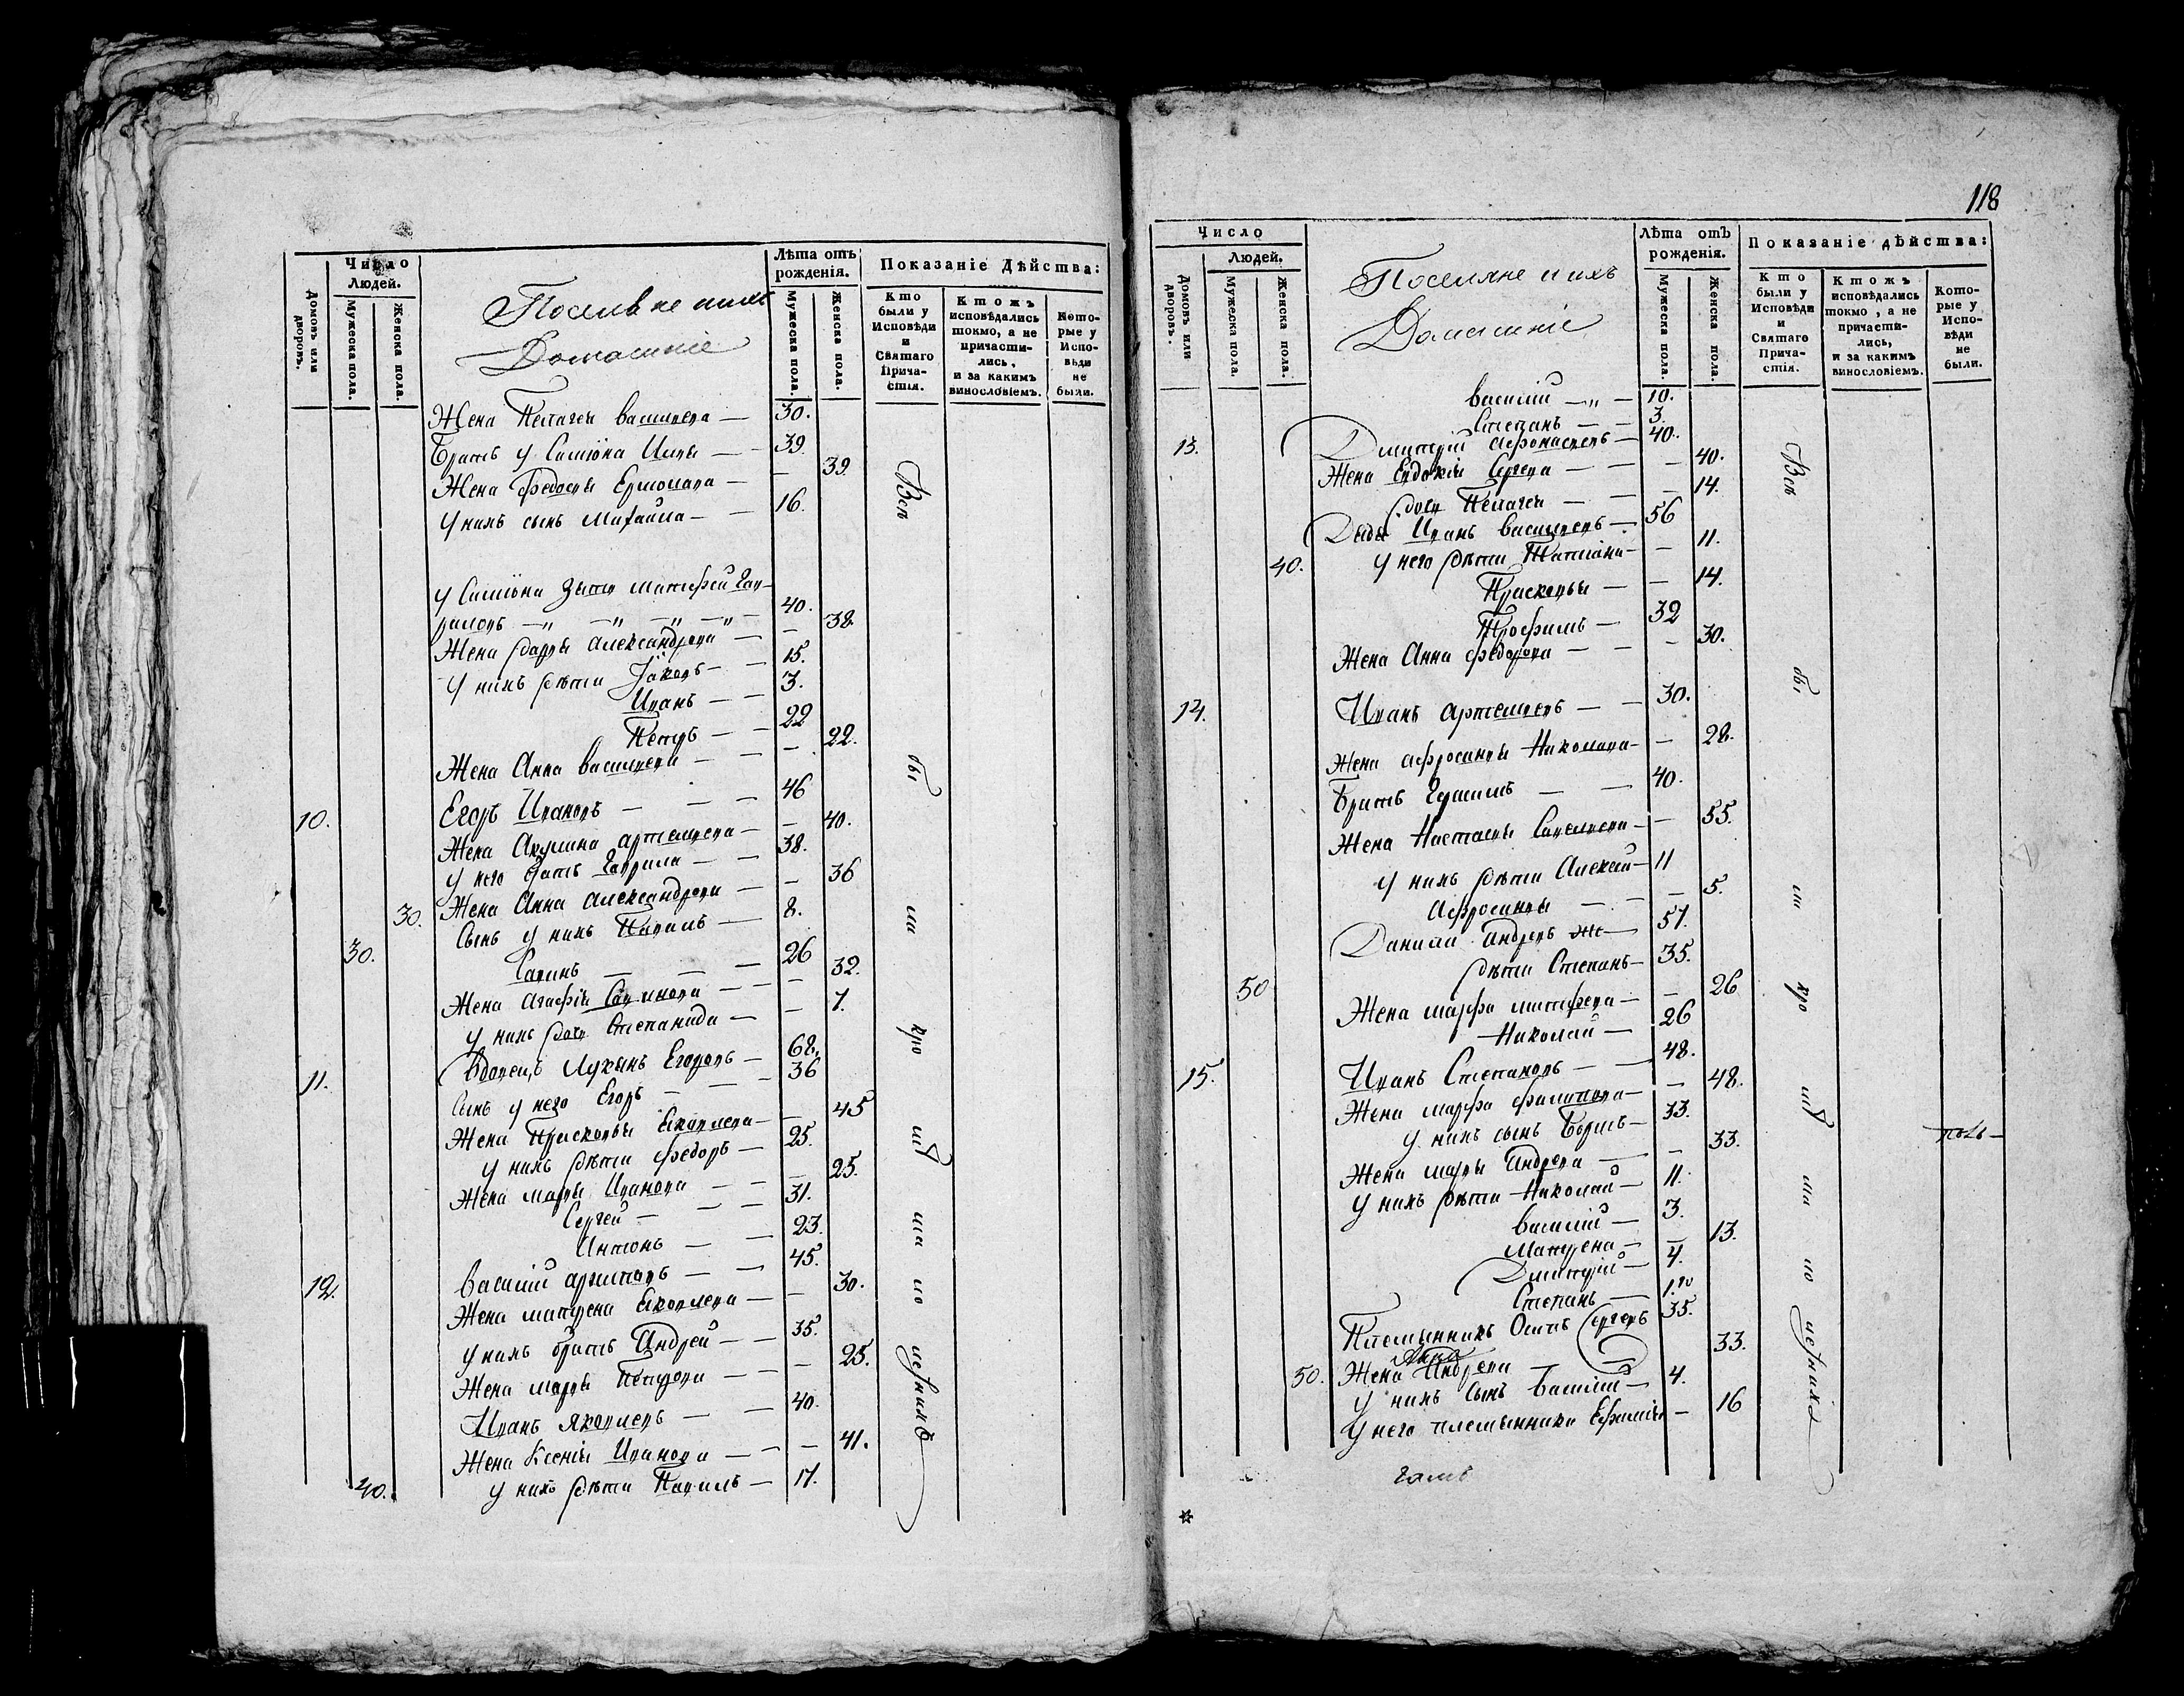 Число
Людей.
Домовъ или дворовъ.
Мужеска пола.
Женска пола.
Поселяне и ихъ
Домашніе
Лѣта отъ рожденія.
Мужеска пола.
Женска пола.
Показаніе Дѣйства:
Кто были у Исповѣди и Святаго Прича-стія.
Ктожъ исповѣдались токмо, а не причасти-лись, и за какимъ винословіемъ.
Кото-рые у Испо-вѣди не были.
Жена Пелагея Васильева — 30.
Братъ у Симіона Илья — 39.
Жена Федосья Ермолаева — — 39.
У нихъ сынъ Михайла — 16.
У Симіона зять Матфей Гав-
риловъ —„ —„ —„ —„ — 40.
Жена Дарья Александрова — — 38.
У нихъ дѣти Іаковъ — 15.
Иванъ — 3.
Петръ — 22
Жена Анна Васильева — — 22.
10. Егоръ Ивановъ — 46
Жена Акулина Артемьева — — 40.
У него братъ Гаврила — 38.
30. Жена Анна Александрова — — 36
30. Сынъ у нихъ Павелъ — 8.
Савинъ — 26
Жена Агафія — — 32.
У нихъ дочь Степанида — — 7.
11. Вдовецъ Лукьянъ Егоровъ — 68.
Сынъ у него Егоръ — 36
Жена Прасковья Яковлева — — 45
У нихъ дѣти Федоръ — 25.
Жена Марья Иванова — — 25.
Сергей — 31.
Антонъ — 23.
12. Василий — 45.
Жена Матрена Яковлева — — 30.
У нихъ братъ Андрей — 35.
Жена Марья Петрова — — 25.
Иванъ Яковлевъ — 40.
Жена Ксенія Иванова — — 41.
40. У нихъ дѣти Павелъ — 17.
Всѣ бы ли кро мѣ ма ло лѣтнихъ
118
Число
Людей.
Домовъ или дворовъ.
Мужеска пола.
Женска пола.
Поселяне и ихъ
Домашніе
Лѣта отъ рожденія.
Мужеска пола.
Женска пола.
Показаніе дѣйства:
Кто были у Исповѣди и Святаго Прича-стія.
Ктожъ исповѣдались токмо, а не причасти-лись, и за какимъ винословіемъ.
Кото-рые у Испо-вѣди не были.
Василий —„— 10.
Степанъ — 3.
13. Дмитрий Афонасьевъ — 40.
Жена Евдокія Сергева — — 40.
Дочь Пелагея — — 14.
Дядя Иванъ Васильевъ — 56
40. У него дѣти Татіана — — 11.
Прасковья — — 14.
Трофимъ — 32
Жена Анна Федорова — — 30.
14. Иванъ Артемьевъ — 30.
Жена Афросинья Николаева — — 28.
Братъ Герасимъ — 40.
Жена Настасья Савельева — — 55.
У нихъ дѣти Алексей — 11
Афросинья — — 5.
Данила Андревъ — 51.
Дѣти Степанъ — 35.
50 Жена Марфа Матфева — — 26
Николай — 26
15. Иванъ Степановъ — 48.
Жена Марфа Филипова — — 48.
У нихъ сынъ Борисъ — 33.
Жена Марья Андрева — — 33.
У нихъ дѣти Николай — 11.
Василий — 3.
Матрена — — 13.
Дмитрий — 4.
Степанъ — 1.
Племянникъ Осипъ Сергевъ 35.
50. Жена Анна Андрева — 33.
У нихъ сынъ Василий — 4.
У него племянника Ефимія — — 16
Всѣ бы ли кро мѣ ма ло лѣтнихъ
☆